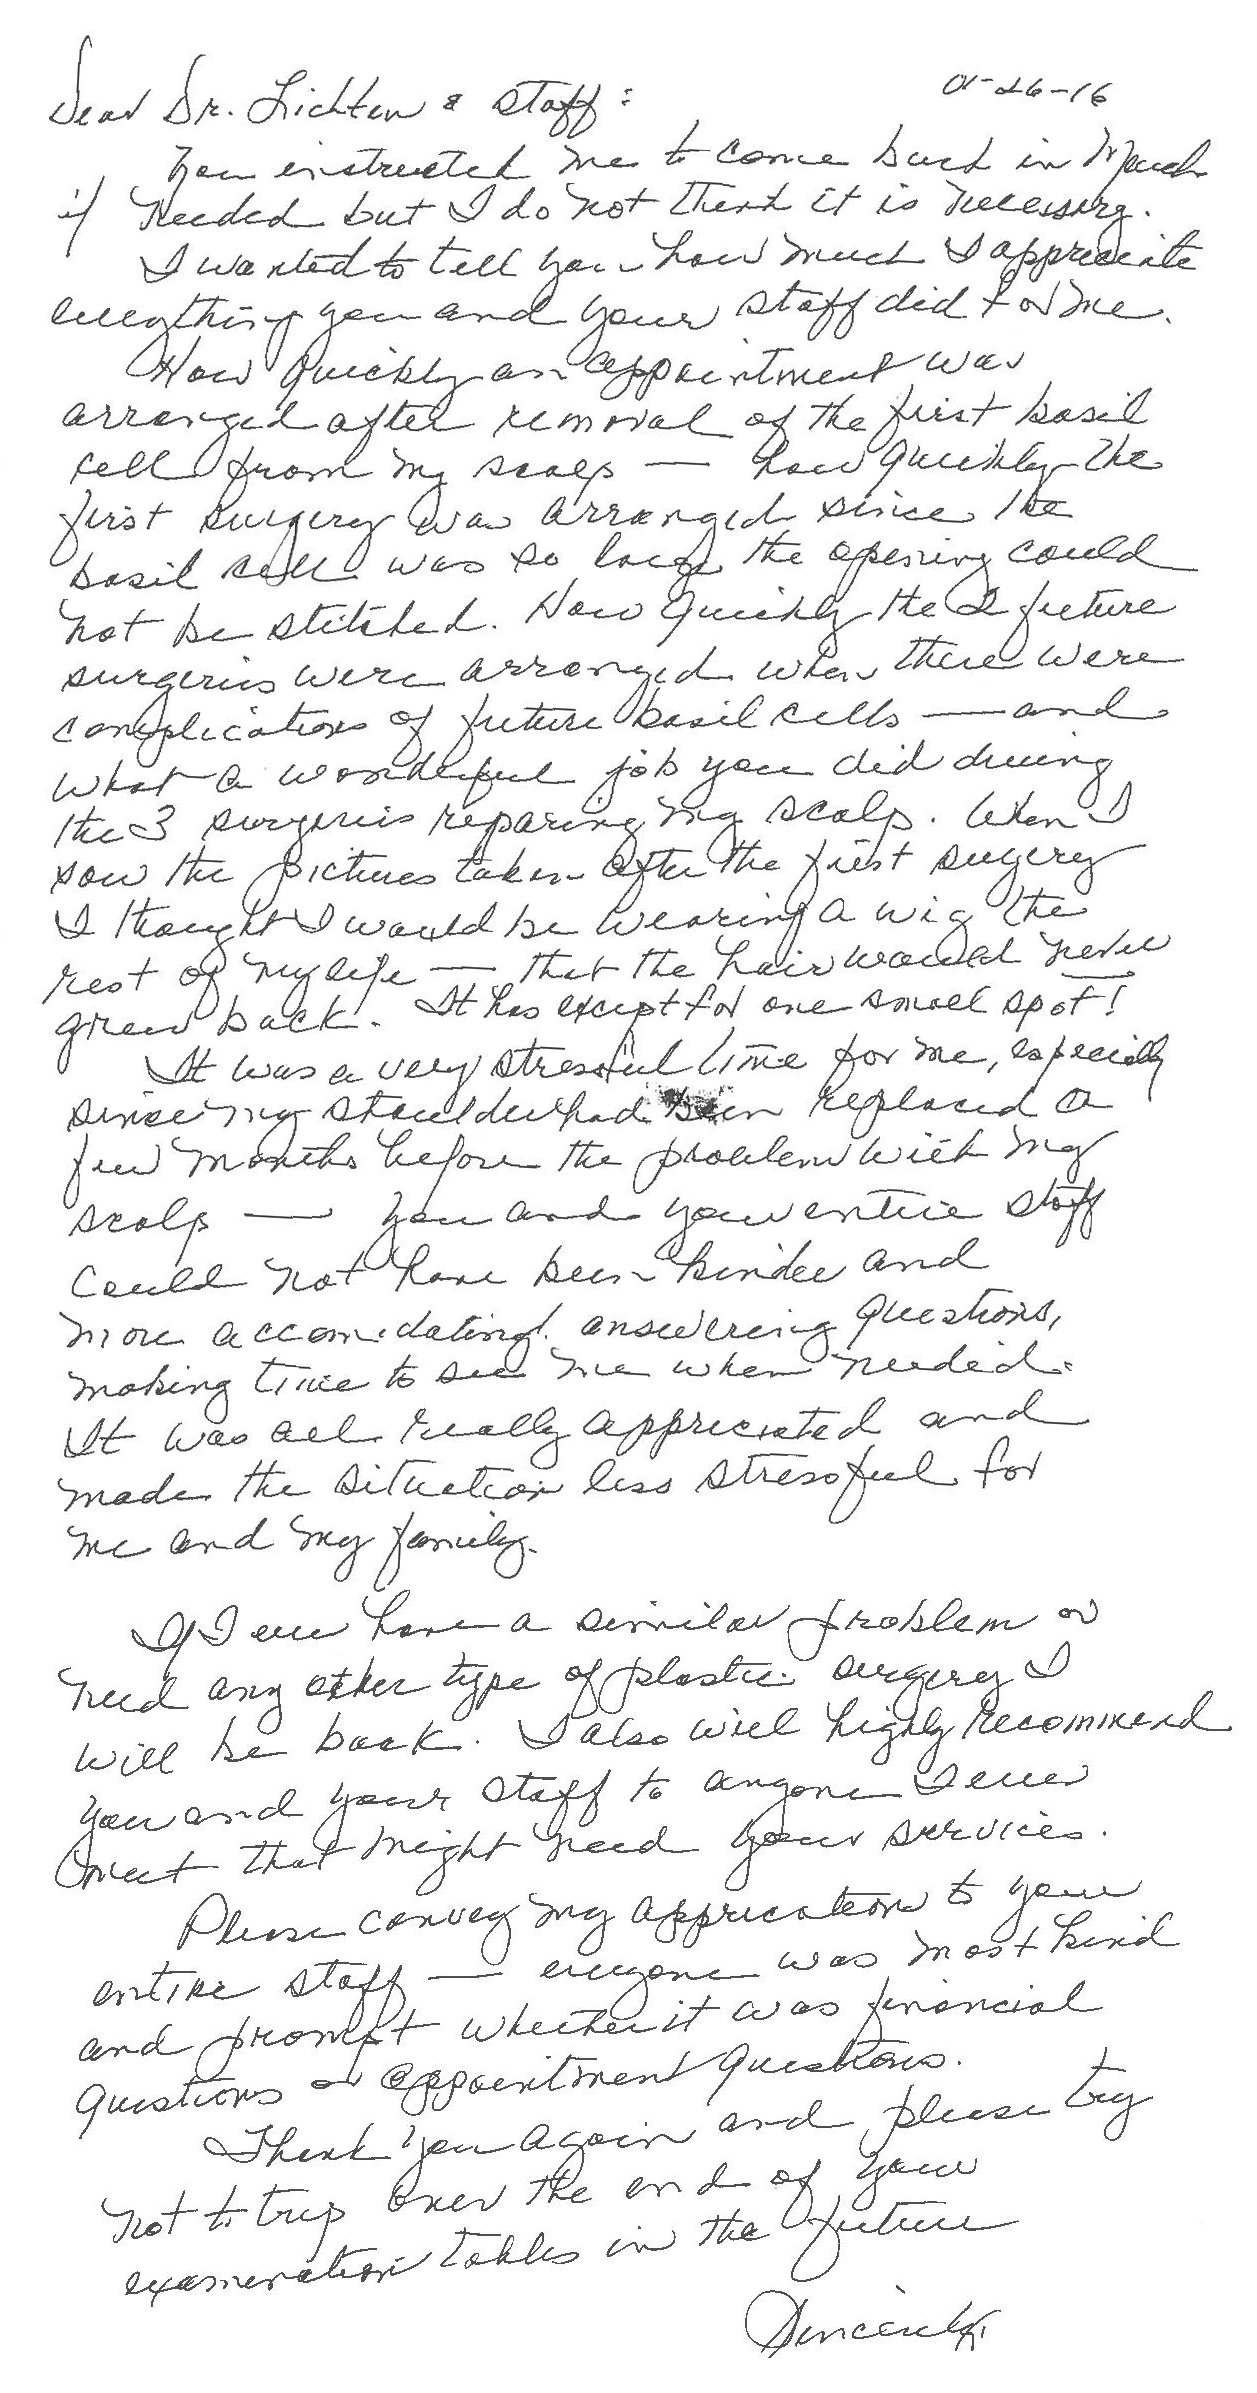 01-26-16
Dear Dr. Lichten & staff:
You instructed me to come back in March
if needed but I do not think it is necessary.
I wanted to tell you how much I appreciate
everything you and your staff did for me.
How quickly an appointment was
arranged after removal of the first basil
cell from my scalp — how quickly the
first surgery was arranged since the
basil cell was so large the opening could
not be stitched. How quickly the 2 future
surgeries were arranged when there were
complications of future basil cells — and
what a wonderful job you did during
the 3 surgeries reparing my scalp. When I
saw the pictures taken after the first surgery
I thought I would be wearing a wig the
rest of my life — that the hair would never
grow back. It has except for one small spot!
It was a very stressful time for me, especially
since my shoulder had been replaced a
few months before the problem with my
scalp — you and your entire staff
could not have been kinder and
more accomodating! answering questions,
making time to see me when needed.
It was all really appreciated and
made the situation less stressful for
me and my family.
If I ever have a similar problem or
need any other type of plastic surgery I
will be back. I also will highly recommend
you and your staff to anyone I ever
meet that might need your services.
Please convey my appreciation to your
entire staff — everyone was most kind
and prompt whether it was financial
questions or appointment questions.
Thank you again and please try
not to trip over the end of your
examination tables in the future
Sincerely,